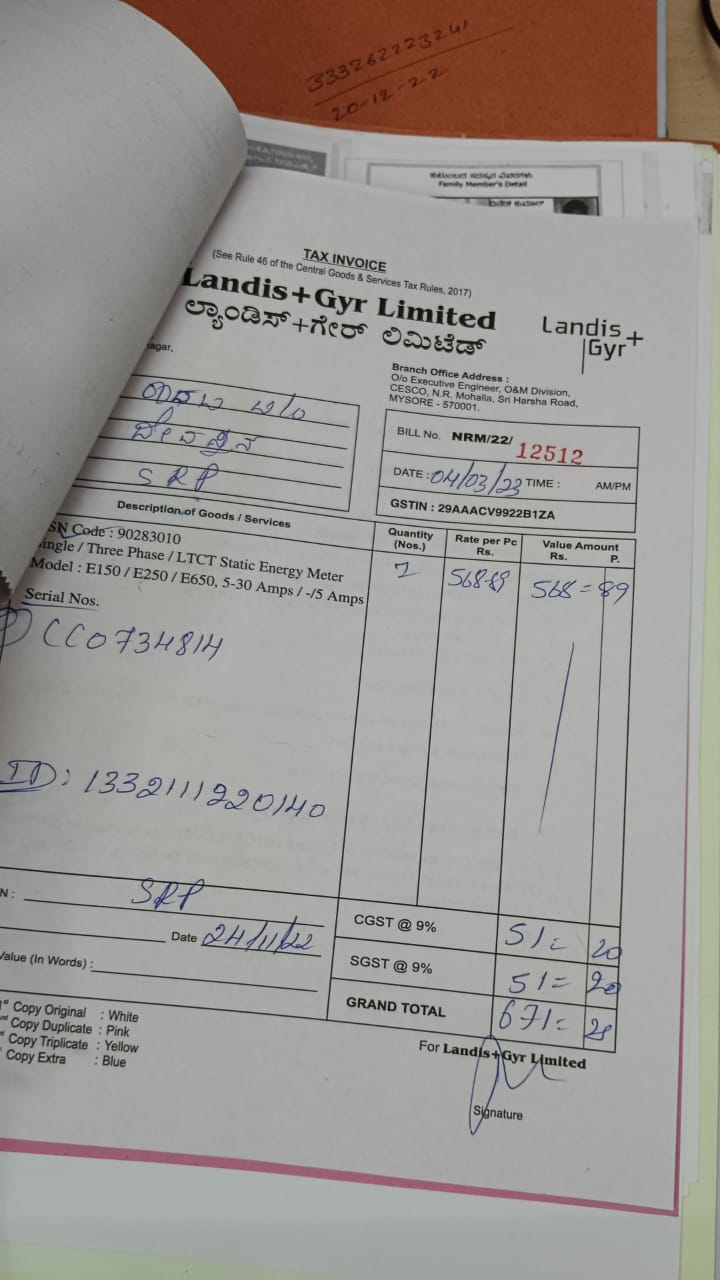 333262223241
20-12-22
ಕುಟುಂಬದ ಸದಸ್ಯರ ವಿವರಗಳು
Family Member's Detail
TAX INVOICE
(See Rule 46 of the Central Goods & Services Tax Rules, 2017)
Landis+Gyr Limited
ಲ್ಯಾಂಡಿಸ್+ಗೇರ್ ಲಿಮಿಟೆಡ್
Landis+
Gyr
nagar,
Branch Office Address :
O/o Executive Engineer, O&M Division,
CESCO, N.R. Mohalla, Sri Harsha Road,
MYSORE - 570001.
SRP
BILL No. NRM/22/ 12512
DATE : 04/03/23 TIME : AM/PM
GSTIN : 29AAACV9922B1ZA
Description of Goods / Services Quantity (Nos.) Rate per Pc Rs. Value Amount Rs. P.
SN Code : 90283010
ingle / Three Phase / LTCT Static Energy Meter
Model : E150 / E250 / E650, 5-30 Amps / -/5 Amps
1 568-89 568=89
Serial Nos.
CC0734814
ID: 1332111220140
N : SRP
Date 24/11/22
Value (In Words) :
CGST @ 9% 51= 20
SGST @ 9% 51= 20
GRAND TOTAL 671= 28
1st Copy Original : White
Copy Duplicate : Pink
Copy Triplicate : Yellow
Copy Extra : Blue
For Landis+Gyr Limited
Signature